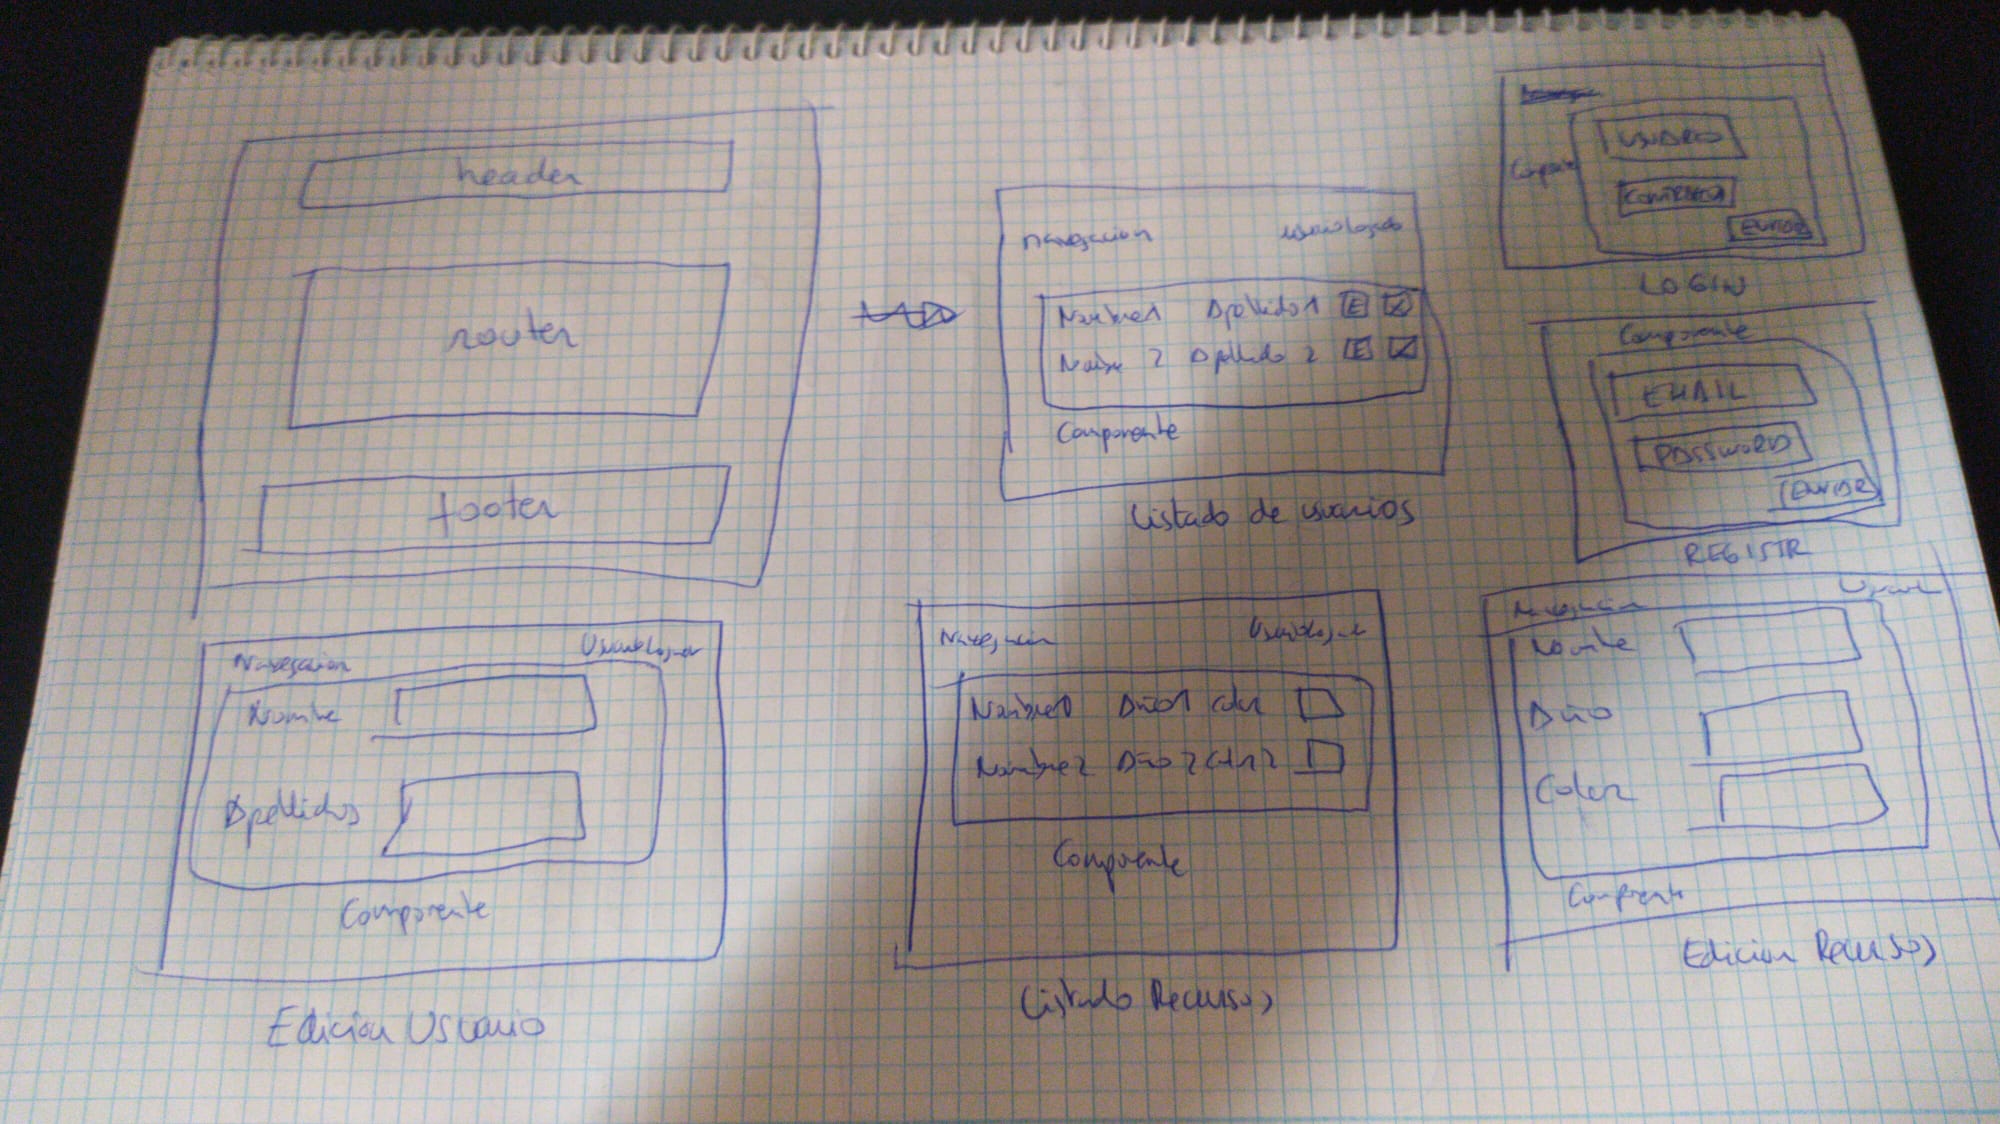 header
router
footer
navegacion usuriologado
Nombre1 Apellido1 E
Nombre 2 Apellido 2 E
Componente
Listado de usuarios
Componente
USUARIO
ENVIAR
LOGIN
Componente
EMAIL
PASSWORD
ENVIAR
REGISTR
Navegacion
Nombre
Apellidos
Componente
Edicion Usuario
Navegacion
Nombre1 Año1 Color
Nombre2 Año 2 Color 2
Componente
Listado Recursos
Navegacion
Nombre
Año
Color
Componente
Edicion Recursos